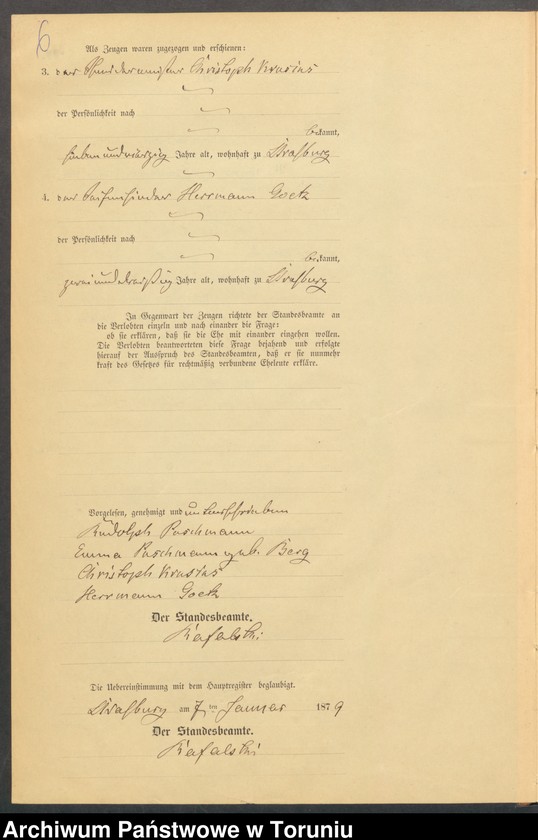 6
Als Zeugen waren zugezogen und erschienen:
3. der Christoph Krusius
der Persönlichkeit nach
bekannt,
sieben und vierzig Jahre alt, wohnhaft zu Strasburg
4. der Seifensieder Herrmann Goetz
der Persönlichkeit nach
bekannt,
zwei und dreißig Jahre alt, wohnhaft zu Strasburg
In Gegenwart der Zeugen richtete der Standesbeamte an
die Verlobten einzeln und nach einander die Frage:
ob sie erklären, daß sie die Ehe mit einander eingehen wollen.
Die Verlobten beantworteten diese Frage bejahend und erfolgte
hierauf der Ausspruch des Standesbeamten, daß er sie nunmehr
kraft des Gesetzes für rechtmäßig verbundene Eheleute erkläre.
Vorgelesen, genehmigt und unterschrieben
Rudolph Paschmann
Emma Paschmann geb. Berg
Christoph Krusius
Herrmann Goetz
Der Standesbeamte.
Kafalski
Die Uebereinstimmung mit dem Hauptregister beglaubigt.
Strasburg am 7ten Januar 1879
Der Standesbeamte.
Kafalski
Archiwum Państwowe w Toruniu